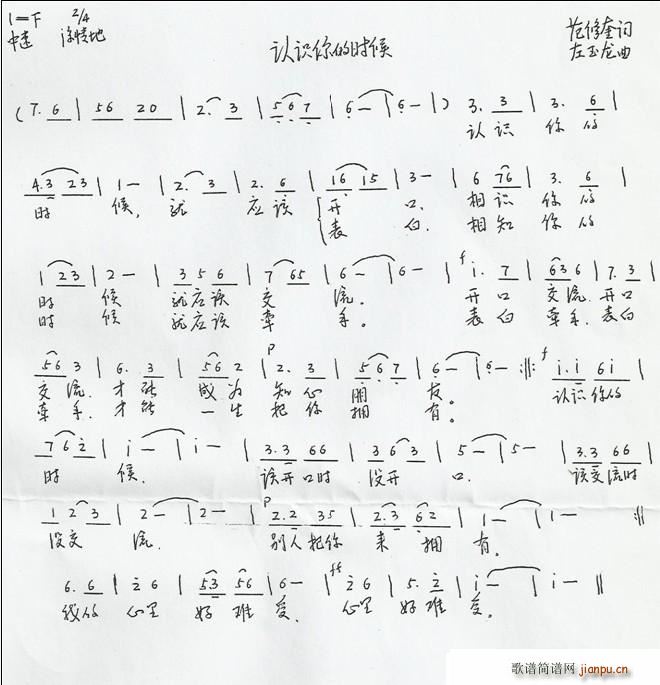 1=F 2/4
中速 深情地
认识你的时候
范修奎词
左玉龙曲
(7. 6 | 56 20 | 2. 3 | 5 6 7 | 6 — | 6 — |) 3. 3 | 3. 6 |
认识 你的
4.3 23 | 1 — | 2. 3 | 2. 6 | 16 15 | 3 — | 6 76 | 3. 6 |
时 候, 就 应该 开 口. 相识 你的
表 白. 相知 你的
1 23 | 2 — | 3 5 6 | 7 65 | 6 — | 6 — | f i. 7 | 63 6 | 7. 3 |
时 候 就应该 交 流. 开口 交流. 开口
时 候 就应该 牵 手. 表白 牵手. 表白
56 3 | 6. 3 | 56 2 | p 2. 3 | 5 6 7 | 6 — | 6 — :‖: f i.i 6i |
交流. 才能 成为 知心 朋 友。 认识你的
牵手. 才能 一生 把你 拥 有。
7 6 2 | i — | i — | 3.3 66 | 3 6 3 | 5 — | 5 — | 3.3 66 |
时 候. 该开口时 没开 口. 该交流时
1 2 3 | 2 — | 2 — | p 2.2 35 | 2.3 62 | 1 — | 1 — :‖
没交 流. 别人把你 来 拥 有.
6. 6 | 2 6 | 53 56 | 6 — | ff 2 6 | 5. 2 | i — | i — ‖
我的 心里 好 难 受. 心里 好难 受。
歌谱简谱网
jianpu.cn